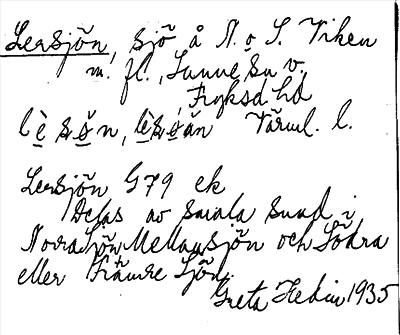 Lersjön, sjö å N. o S. Viken
m. fl., Sunne sn v.,
Fryksd hd
Värml. l.
Lersjön G79 ek
Delas av smala sund i
Norra Sjön Mellansjön och Södra
eller Främre Sjön.
Greta Hedin 1935